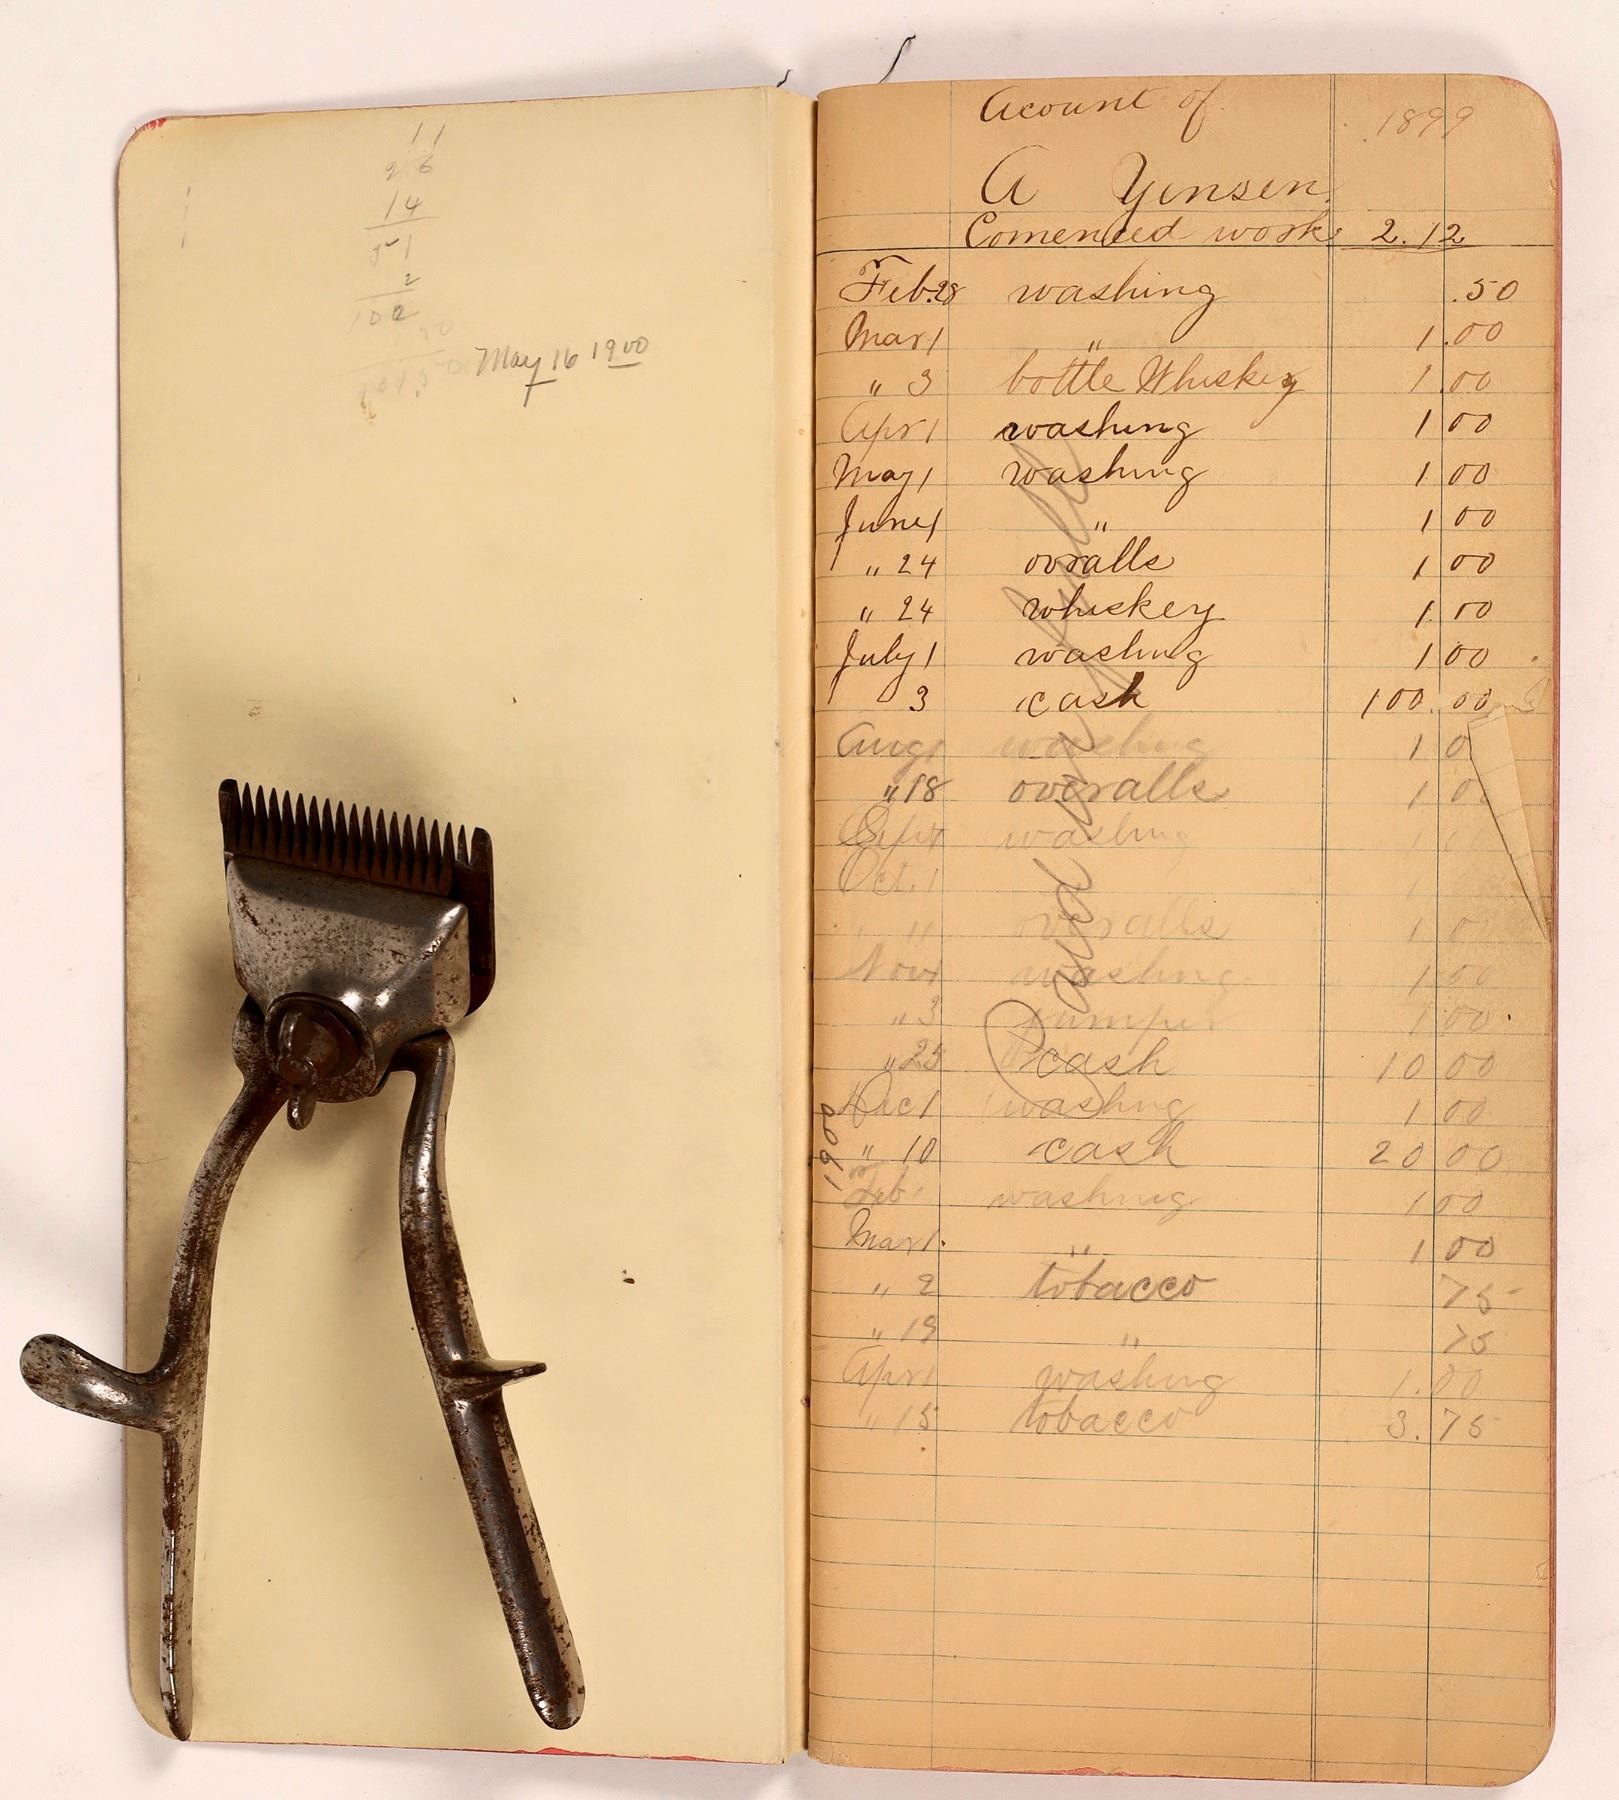 11
26
14
51
2
102
May 16 1900
Acount of 1899
A Yensen
Comenced work 2.12
Feb. 28 washing .50
Mar 1 " 1.00
" 3 bottle Whiskey 1.00
Apr 1 washing 1 00
May 1 washing 1 00
June 1 " 1 00
" 24 ovralls 1 00
" 24 whiskey 1 00
July 1 washing 1 00
3 cash 100.00
Aug 1 washing 1 0
" 18 overalls 1 0
Sept 1 washing 1
Oct. 1 1
" overalls 1 0
Nov 1 washing 1 00
" 3 jumper 1 00
" 25 cash 10 00
Dec 1 washing 1 00
" 10 cash 20 00
1900
Feb washing 1 00
Mar 1. " 1 00
" 2 tobacco 75
" 19 " 75
Apr 1 washing 1.00
" 15 tobacco 3.75
Paid in full